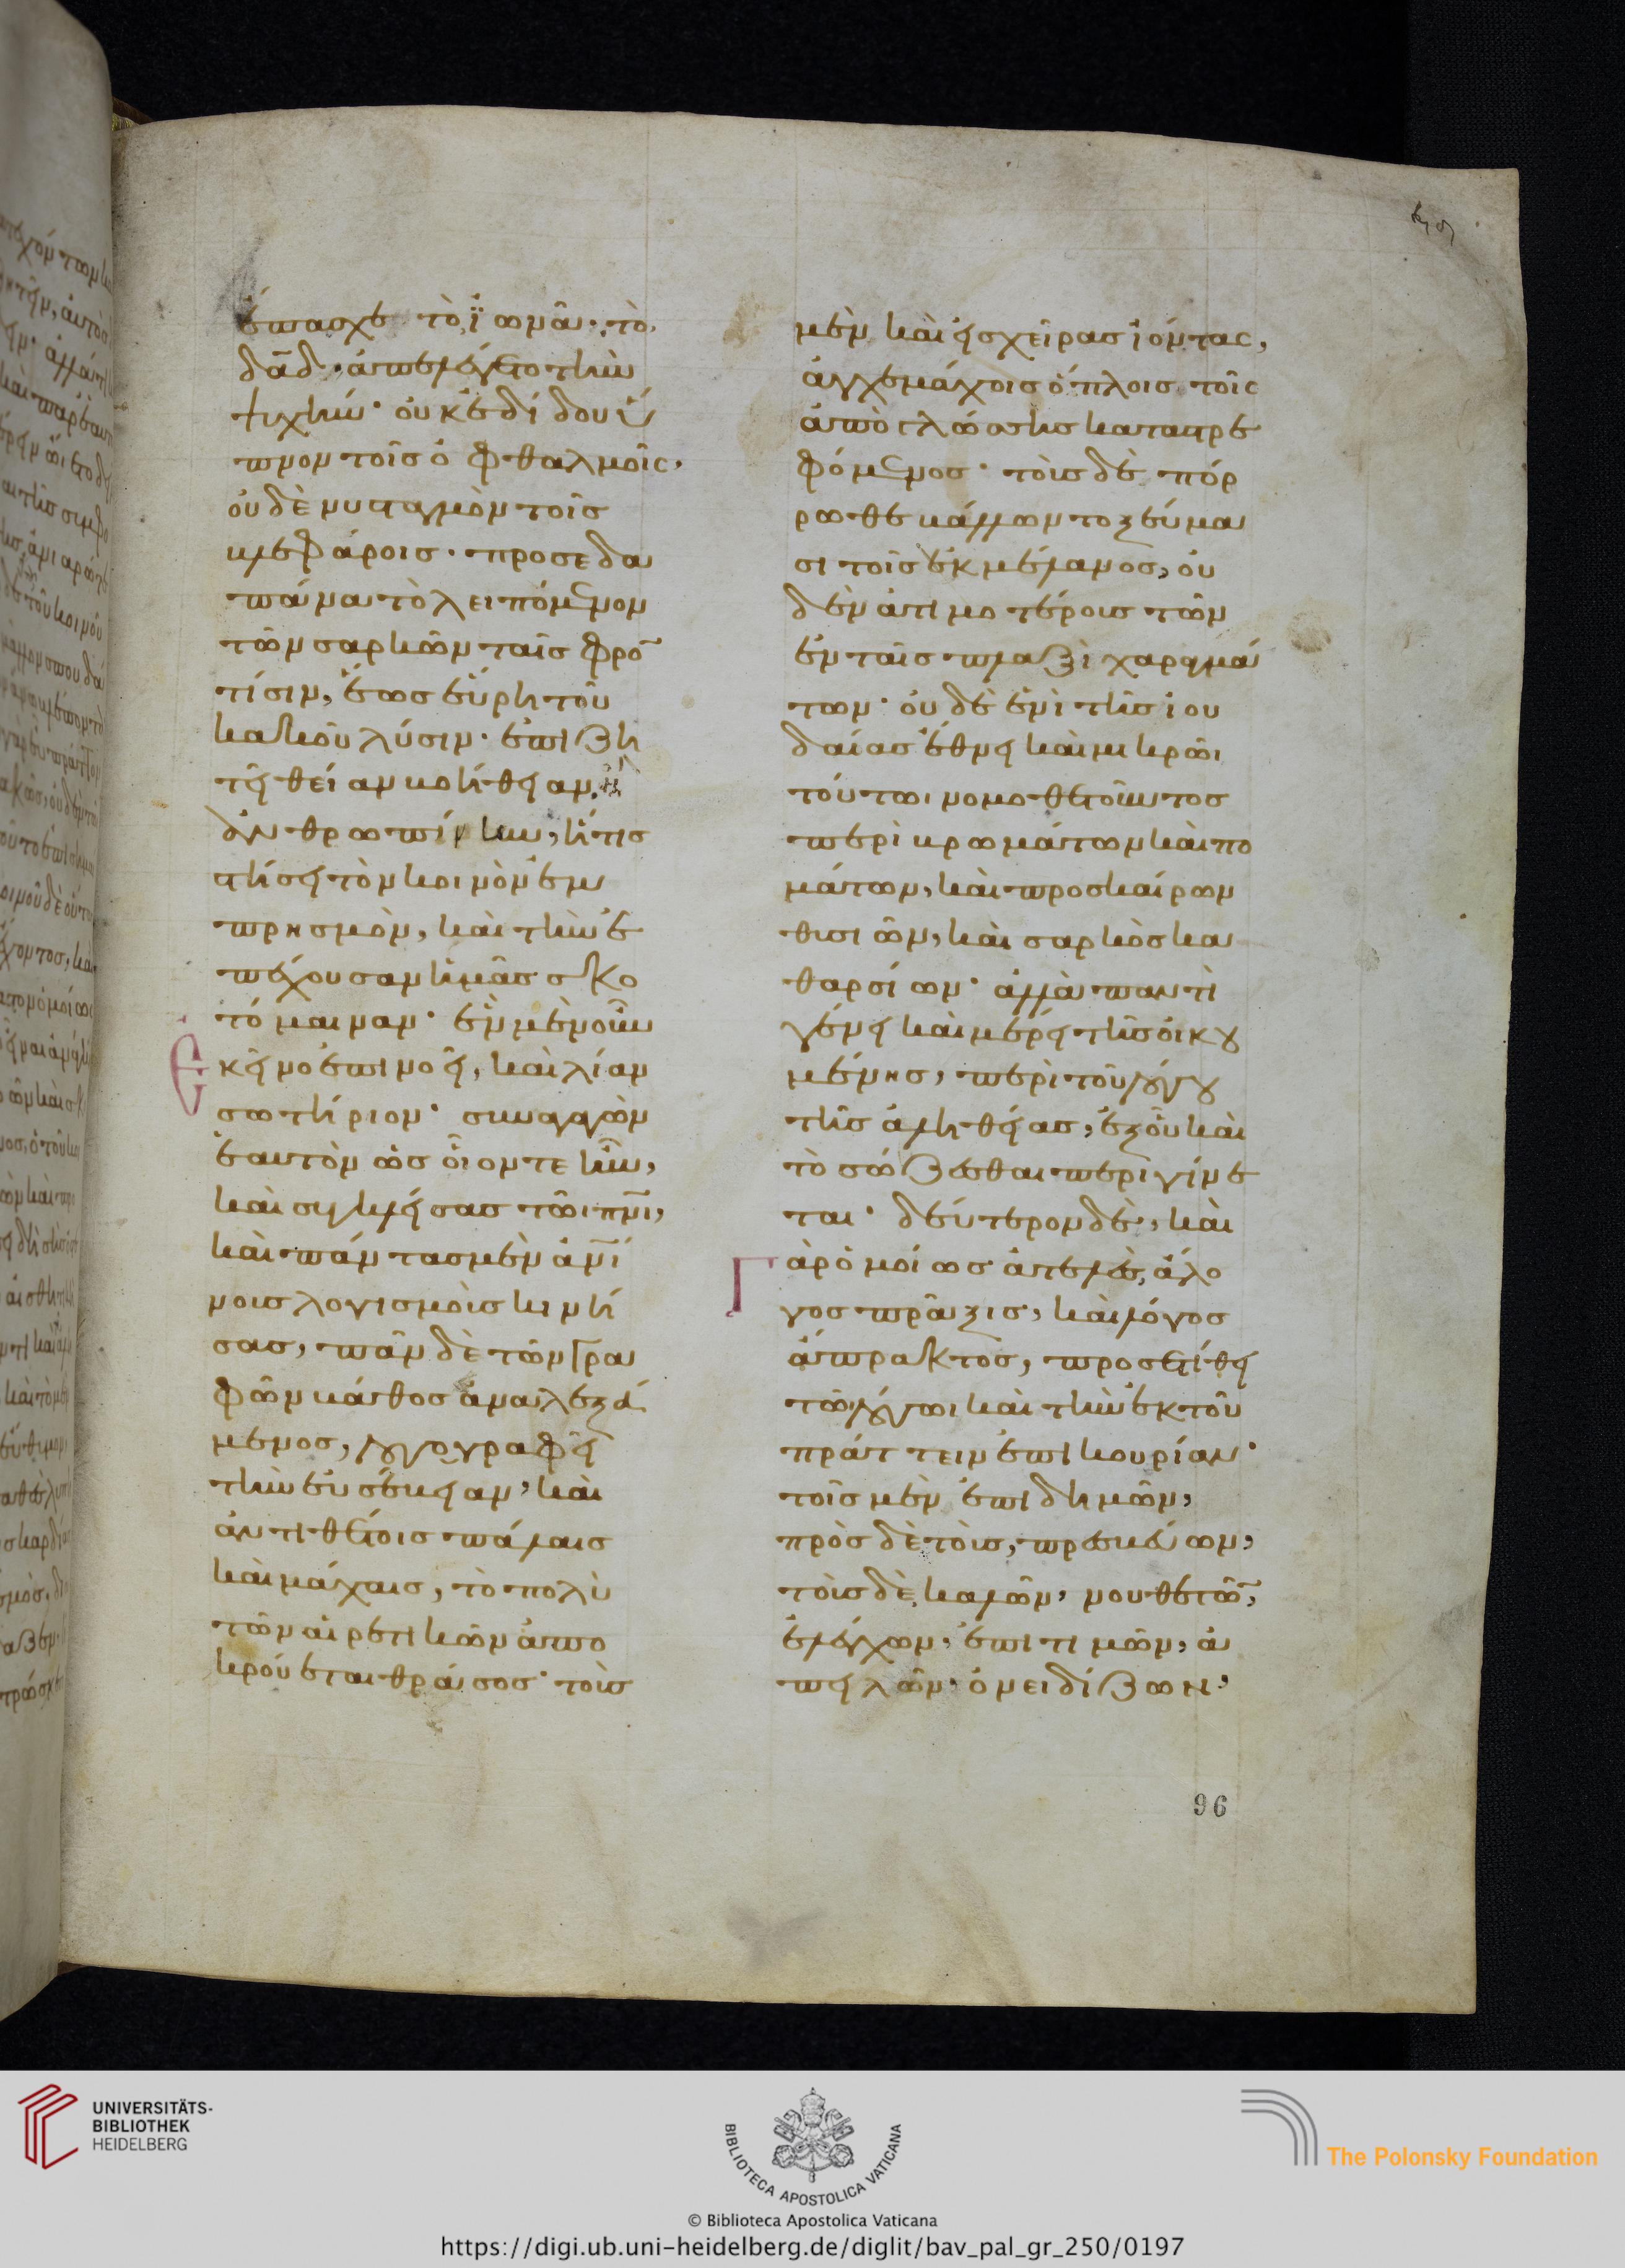 ἔπασχε τὸ ἰωνᾶ· τὸ
δᾶδ· ἀπελέγετο τὴν
ψυχήν· οὐκ ἐδίδου ὕ
πνον τοῖς ὀφθαλμοῖς,
οὐδὲ νυσταγμὸν τοῖς
βλεφάροις· προσεδα
πάνα τὸ λειπόμενον
τῶν σαρκῶν ταῖς φρο̅
τίσιν, ἕως εὕρη τοῦ
κακοῦ λύσιν· ἐπιζη
τεῖ θείαν βοήθειαν ἢ
ἀνθρωπίνην, ἥτις
στήσει τὸν κοινὸν ἐμ
πρησμὸν, καὶ τὴν ἐ
πέχουσαν ἡμᾶς σκο
τόμαιναν· ἓν μὲν οὖν
Εκεῖνο ἐπινοεῖ, καὶ λίαν
σωτήριον· συναγαγὼν
ἑαυτὸν ὡς οἷον τε ἦν,
καὶ συγκλείσας τῶι πν̅ι,
καὶ πάντας μὲν ἀν̅ί
νους λογισμοὺς κινή
σας, πᾶν δὲ τῶν γρα
φῶν βάθος ἀναλεξά
μενος, λογογραφεῖ
τὴν εὐσέβειαν, καὶ
ἀντιθέτοις πάλαις
καὶ μάχαις, τὸ πολὺ
τῶν αἱρετικῶν ἀπο
κρούεται θράσος· τοὺς
μὲν καὶ εἰς χεῖρας ἰόντας,
ἀγχεμάχοις ὅπλοις τοῖς
ἀπὸ γλώσσης καταστρε
φόμενος· τοὺς δὲ πόρ
ρωθε βάλλων τοξεύμα
σι τοῖς ἐκ μέλανος, οὐ
δὲν ἀτιμοτέροις τῶν
ἐν ταῖς πλαξὶ χαραγμά
των· οὐδὲ ἑνὶ τῆς ἰου
δαίας ἔθνει καὶ μικρῶι
τούτωι νομοθετοῦντος
περὶ βρωμάτων καὶ πο
μάτων, καὶ προσκαίρων
θυσιῶν, καὶ σαρκὸς κα
θαρσίων· ἀλλὰ παντὶ
γένει καὶ μέρει τῆς οἰκου
μένης, περὶ τοῦ λόγου
τῆς ἀληθείας, ἐξ οὗ καὶ
τὸ σώζεσθαι περιγίνε
ται· δεύτερον δὲ, καὶ
Γὰρ ὁμοίως ἀτελὲς, ἄλο
γος πρᾶξις, καὶ λόγος
ἄπρακτος, προσετίθει
τῶι λόγωι καὶ τὴν ἐκ τοῦ
πράττειν ἐπικουρίαν·
τοῖς μὲν ἐπιδημῶν,
πρὸς δὲ τοὺς, πρεσβεύων,
τοὺς δὲ καλῶν, νουθετῶ̅,
ἐλέγχων, ἐπιτιμῶν, ἀ
πειλῶν, ὀνειδίζων,
96
UNIVERSITÄTS-
BIBLIOTHEK
HEIDELBERG
BIBLIOTECA APOSTOLICA VATICANA
The Polonsky Foundation
© Biblioteca Apostolica Vaticana
https://digi.ub.uni-heidelberg.de/diglit/bav_pal_gr_250/0197